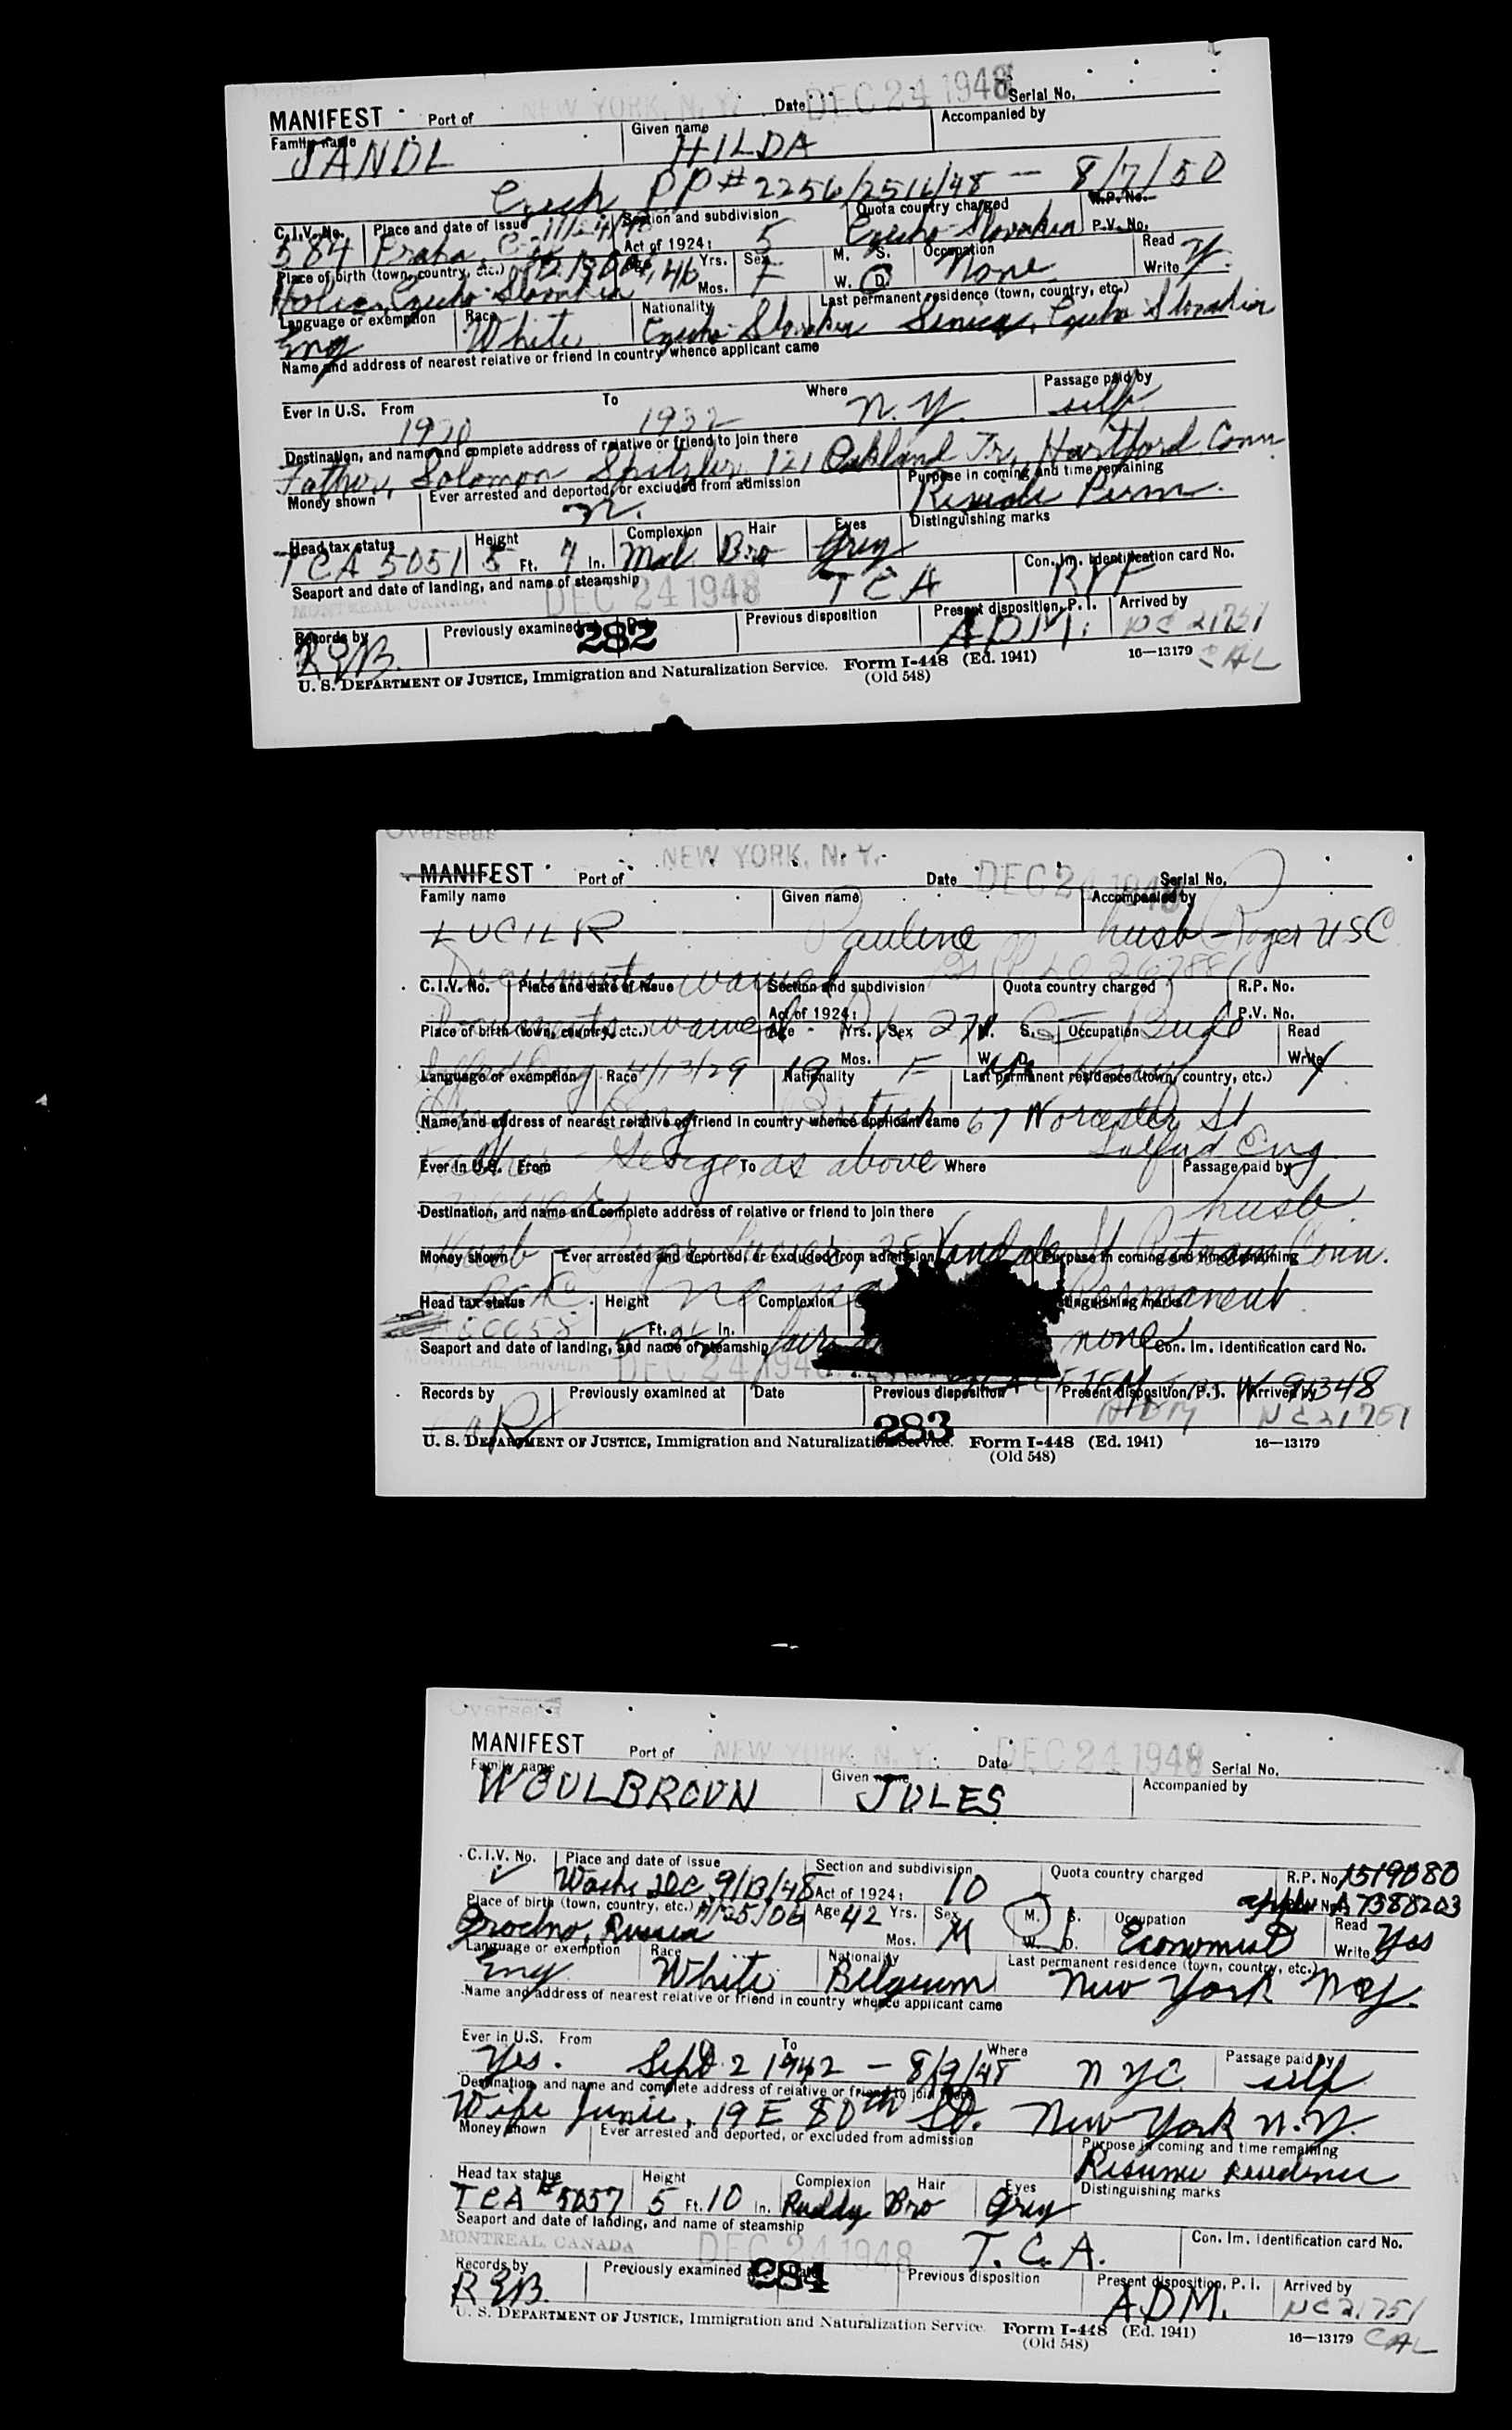 Overseas
MANIFEST Port of NEW YORK, N. Y. Date DEC 24 1948 Serial No.
Family name JANDL Given name HILDA Accompanied by
Czech PP# 2256/2516/48 — 8/7/50
C.I.V. No. Place and date of issue Section and subdivision Quota country charged R.P. No.
584 Praha, Act of 1924: 5 Czecho-Slovakia P.V. No.
Place of birth (town, country, etc.) Age 46 Yrs. Mos. Sex F M. S. W. D. Occupation None Read Write Y.
Holic, Czecho-Slovakia
Language or exemption Race Nationality Last permanent residence (town, country, etc.)
Eng White Czecho-Slovakia Senica, Czecho Slovakia
Name and address of nearest relative or friend in country whence applicant came
Ever in U.S. From 1920 To 1932 Where N.Y. Passage paid by self
Destination, and name and complete address of relative or friend to join there
Father, Solomon 121 Oakland Tr., Hartford Conn
Money shown Ever arrested and deported, or excluded from admission n. Purpose in coming and time remaining Reside Perm.
Head tax status Height Complexion Hair Eyes Distinguishing marks
TCA 5051 5 Ft. 7 In. Med Bro Grey
Seaport and date of landing, and name of steamship Con. Im. Identification card No.
MONTREAL, CANADA DEC 24 1948 TCA
Records by REB. Previously examined at 282 Date Previous disposition Present disposition, P. I. ADM. Arrived by NC 21751
U. S. DEPARTMENT OF JUSTICE, Immigration and Naturalization Service. Form I-448 (Ed. 1941) 16—13179 CAL
(Old 548)
Overseas
MANIFEST Port of NEW YORK, N. Y. Date DEC 24 1948 Serial No.
Family name Given name Accompanied by
LUCIER Pauline husb Roger USC
Documents waived
C.I.V. No. Place and date of issue Section and subdivision Quota country charged R.P. No.
Documents waived Act of 1924: P.V. No.
Place of birth (town, country, etc.) Age Yrs. Sex M. S. Occupation Read
Mos. W. D. Write
4/13/29 19 F
Language or exemption Race Nationality Last permanent residence (town, country, etc.)
Eng British 67 Worcester St
Name and address of nearest relative or friend in country whence applicant came
Salford Eng.
Father George as above
Ever in U.S. From To Where Passage paid by
husb
Destination, and name and complete address of relative or friend to join there
husb Roger Lucier, St Putnam Conn.
Money shown Ever arrested and deported, or excluded from admission Purpose in coming and time remaining
no Permanent
Head tax status Height Complexion Distinguishing marks
50058 5 Ft. In. fair none
Seaport and date of landing, and name of steamship Con. Im. Identification card No.
MONTREAL, CANADA DEC 24 1948
Records by Previously examined at Date Previous disposition Present disposition, P. I. Arrived by
283 ADM NC 21751
U. S. DEPARTMENT OF JUSTICE, Immigration and Naturalization Service. Form I-448 (Ed. 1941) 16—13179
(Old 548)
Overseas
MANIFEST Port of NEW YORK, N. Y. Date DEC 24 1948 Serial No.
Family name WOULBROUN Given name JULES Accompanied by
C.I.V. No. Place and date of issue Section and subdivision Quota country charged R.P. No. 1519080
✓ Wash, DC, 9/13/48 Act of 1924: 10 A7388203
Place of birth (town, country, etc.) 4/25/06 Age 42 Yrs. Mos. Sex M M. S. W. D. Occupation Economist Read Write Yes
Grodno, Russia
Language or exemption Race Nationality Last permanent residence (town, country, etc.)
Eng. White Belgium New York N.Y.
Name and address of nearest relative or friend in country whence applicant came
Ever in U.S. From To Where Passage paid by
Yes. Sept 2 1942 — 8/9/48 NYC self
Destination, and name and complete address of relative or friend to join there
Wife 19 E 80th St. New York N.Y.
Money shown Ever arrested and deported, or excluded from admission Purpose in coming and time remaining
Resume residence
Head tax status Height Complexion Hair Eyes Distinguishing marks
TCA #5057 5 Ft. 10 In. Ruddy Bro Grey
Seaport and date of landing, and name of steamship Con. Im. Identification card No.
MONTREAL, CANADA DEC 24 1948 T.C.A.
Records by REB. Previously examined at 284 Date Previous disposition Present disposition, P. I. ADM. Arrived by NC 21751
U. S. DEPARTMENT OF JUSTICE, Immigration and Naturalization Service. Form I-448 (Ed. 1941) 16—13179 CAL
(Old 548)